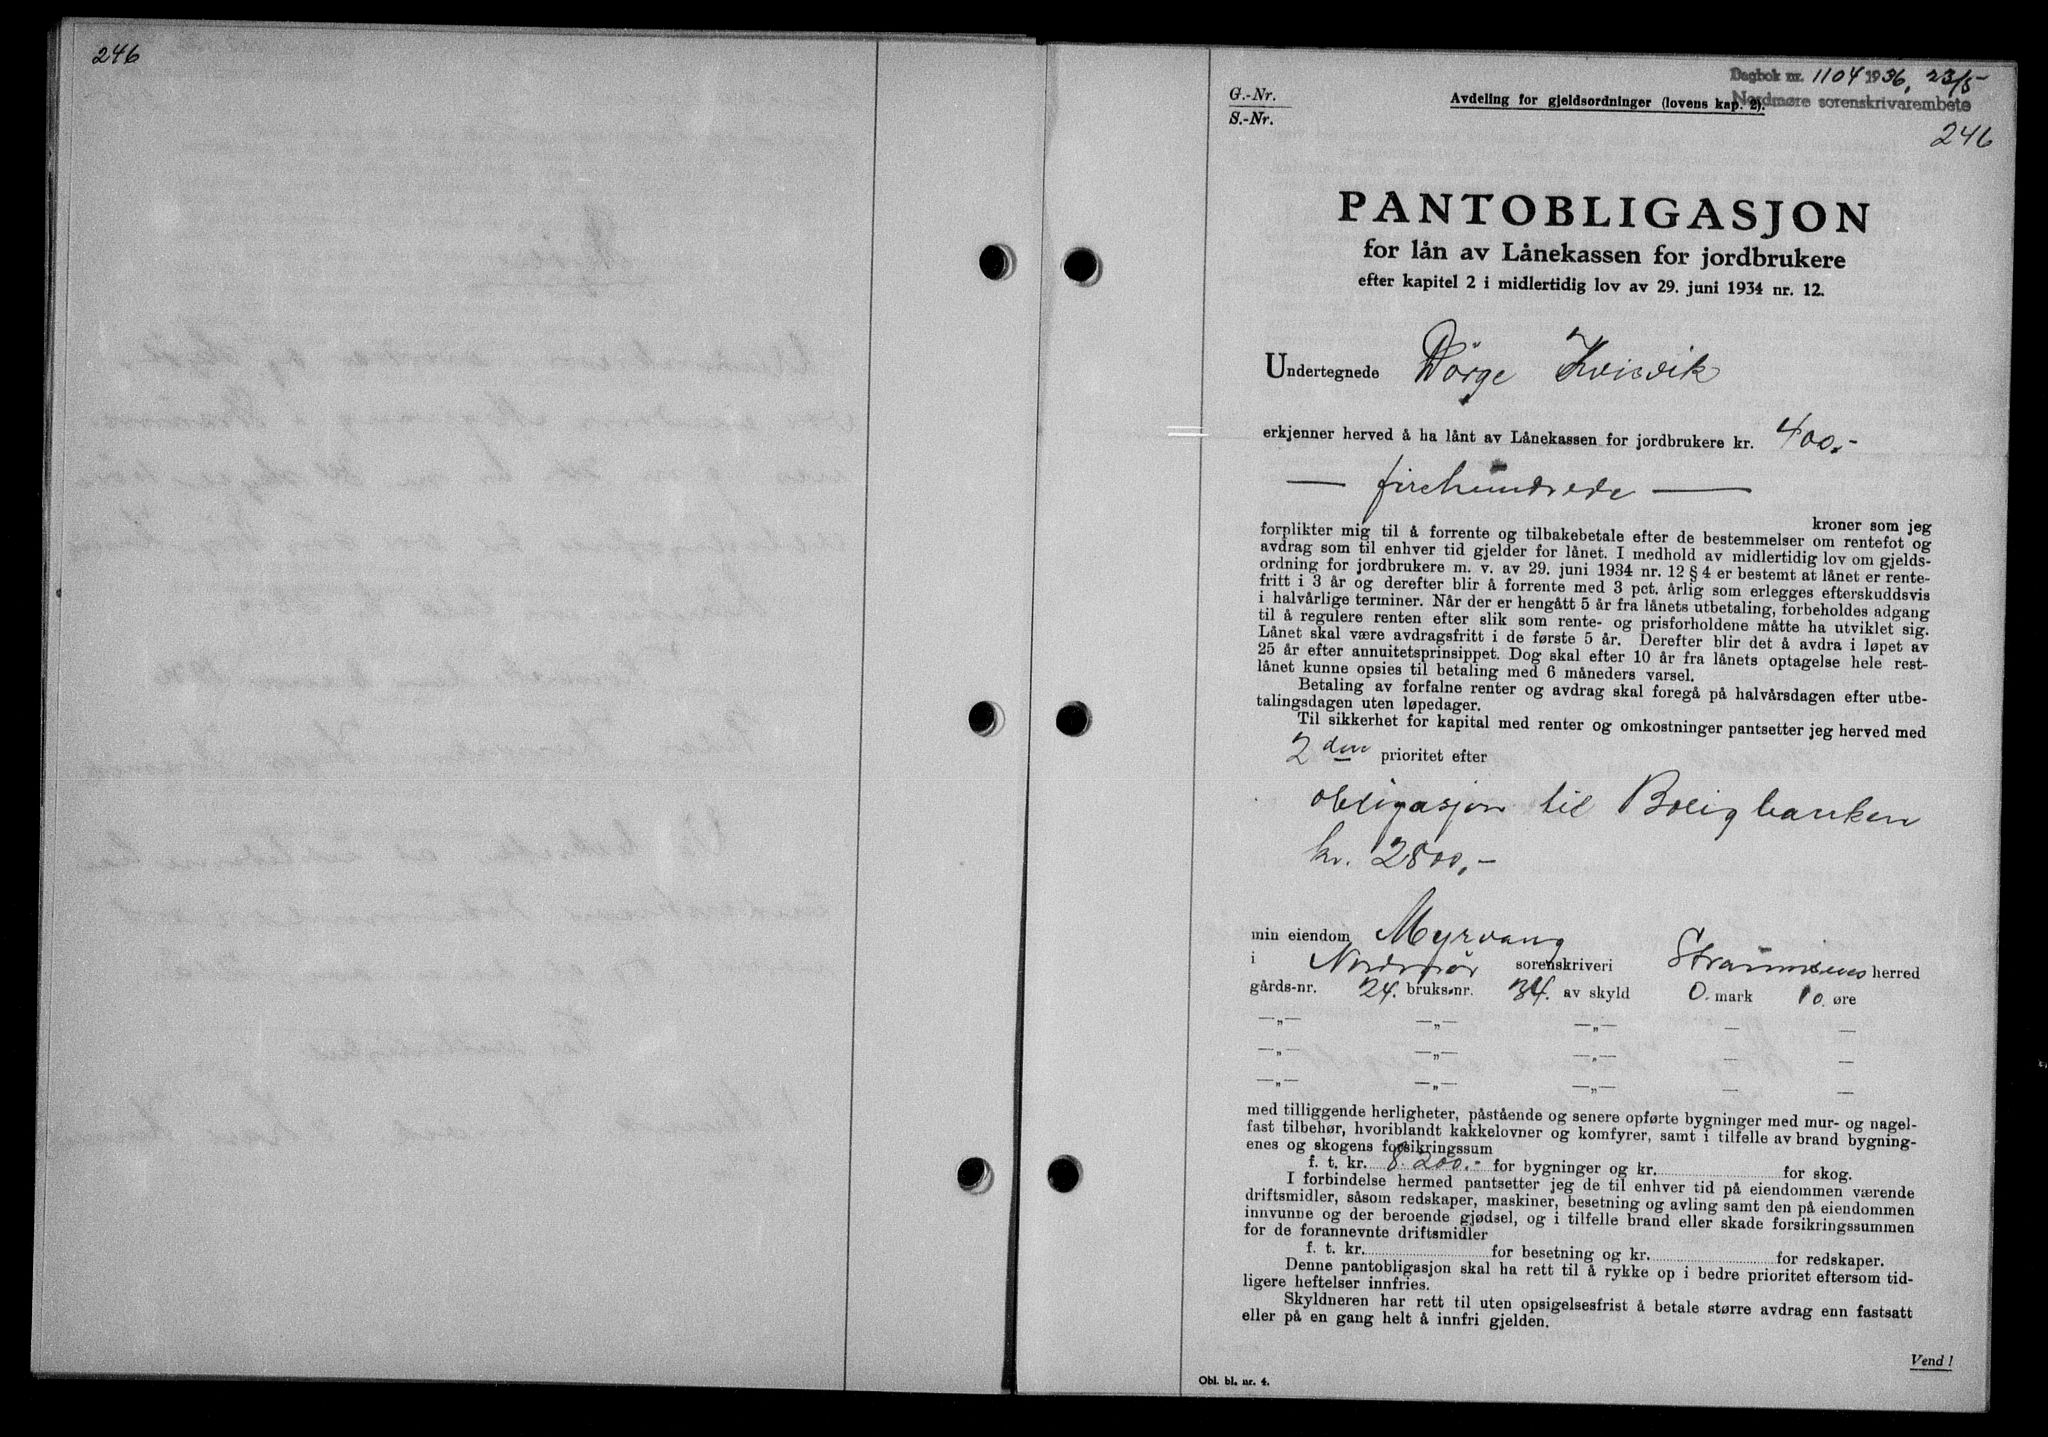 246
Dagbok nr. 1104 1936, 23/5
Nordmøre sorenskrivarembete
246
G.-Nr.
S.-Nr.
Avdeling for gjeldsordninger (lovens kap. 2).
PANTOBLIGASJON
for lån av Lånekassen for jordbrukere
efter kapitel 2 i midlertidig lov av 29. juni 1934 nr. 12.
Undertegnede Börge Kvisvik
erkjenner herved å ha lånt av Lånekassen for jordbrukere kr. 400,-
— firehundrede —
kroner som jeg
forplikter mig til å forrente og tilbakebetale efter de bestemmelser om rentefot og
avdrag som til enhver tid gjelder for lånet. I medhold av midlertidig lov om gjelds-
ordning for jordbrukere m. v. av 29. juni 1934 nr. 12 § 4 er bestemt at lånet er rente-
fritt i 3 år og derefter blir å forrente med 3 pct. årlig som erlegges efterskuddsvis
i halvårlige terminer. Når der er hengått 5 år fra lånets utbetaling, forbeholdes adgang
til å regulere renten efter slik som rente- og prisforholdene måtte ha utviklet sig.
Lånet skal være avdragsfritt i de første 5 år. Derefter blir det å avdra i løpet av
25 år efter annuitetsprinsippet. Dog skal efter 10 år fra lånets optagelse hele rest-
lånet kunne opsies til betaling med 6 måneders varsel.
Betaling av forfalne renter og avdrag skal foregå på halvårsdagen efter utbe-
talingsdagen uten løpedager.
Til sikkerhet for kapital med renter og omkostninger pantsetter jeg herved med
2den prioritet efter
obligasjon til Boligbanken
kr. 2800,-
min eiendom Myrvang
i Nordmör sorenskriveri Straumsnes herred
gårds-nr. 24. bruks-nr. 34. av skyld 0. mark 10. øre
—„— —„— —„— — —
—„— —„— —„— — —
—„— —„— —„— — —
med tilliggende herligheter, påstående og senere opførte bygninger med mur- og nagel-
fast tilbehør, hvoriblandt kakkelovner og komfyrer, samt i tilfelle av brand bygning-
enes og skogens forsikringssum
f. t. kr. 8.200.- for bygninger og kr. for skog.
I forbindelse hermed pantsetter jeg de til enhver tid på eiendommen værende
driftsmidler, såsom redskaper, maskiner, besetning og avling samt den på eiendommen
innvunne og der beroende gjødsel, og i tilfelle brand eller skade forsikringssummen
for de forannevnte driftsmidler
f. t. kr. for besetning og kr. for redskaper.
Denne pantobligasjon skal ha rett til å rykke op i bedre prioritet eftersom tid-
ligere heftelser innfries.
Skyldneren har rett til uten opsigelsesfrist å betale større avdrag enn fastsatt
eller på en gang helt å innfri gjelden.
Vend!
Obl. bl. nr. 4.